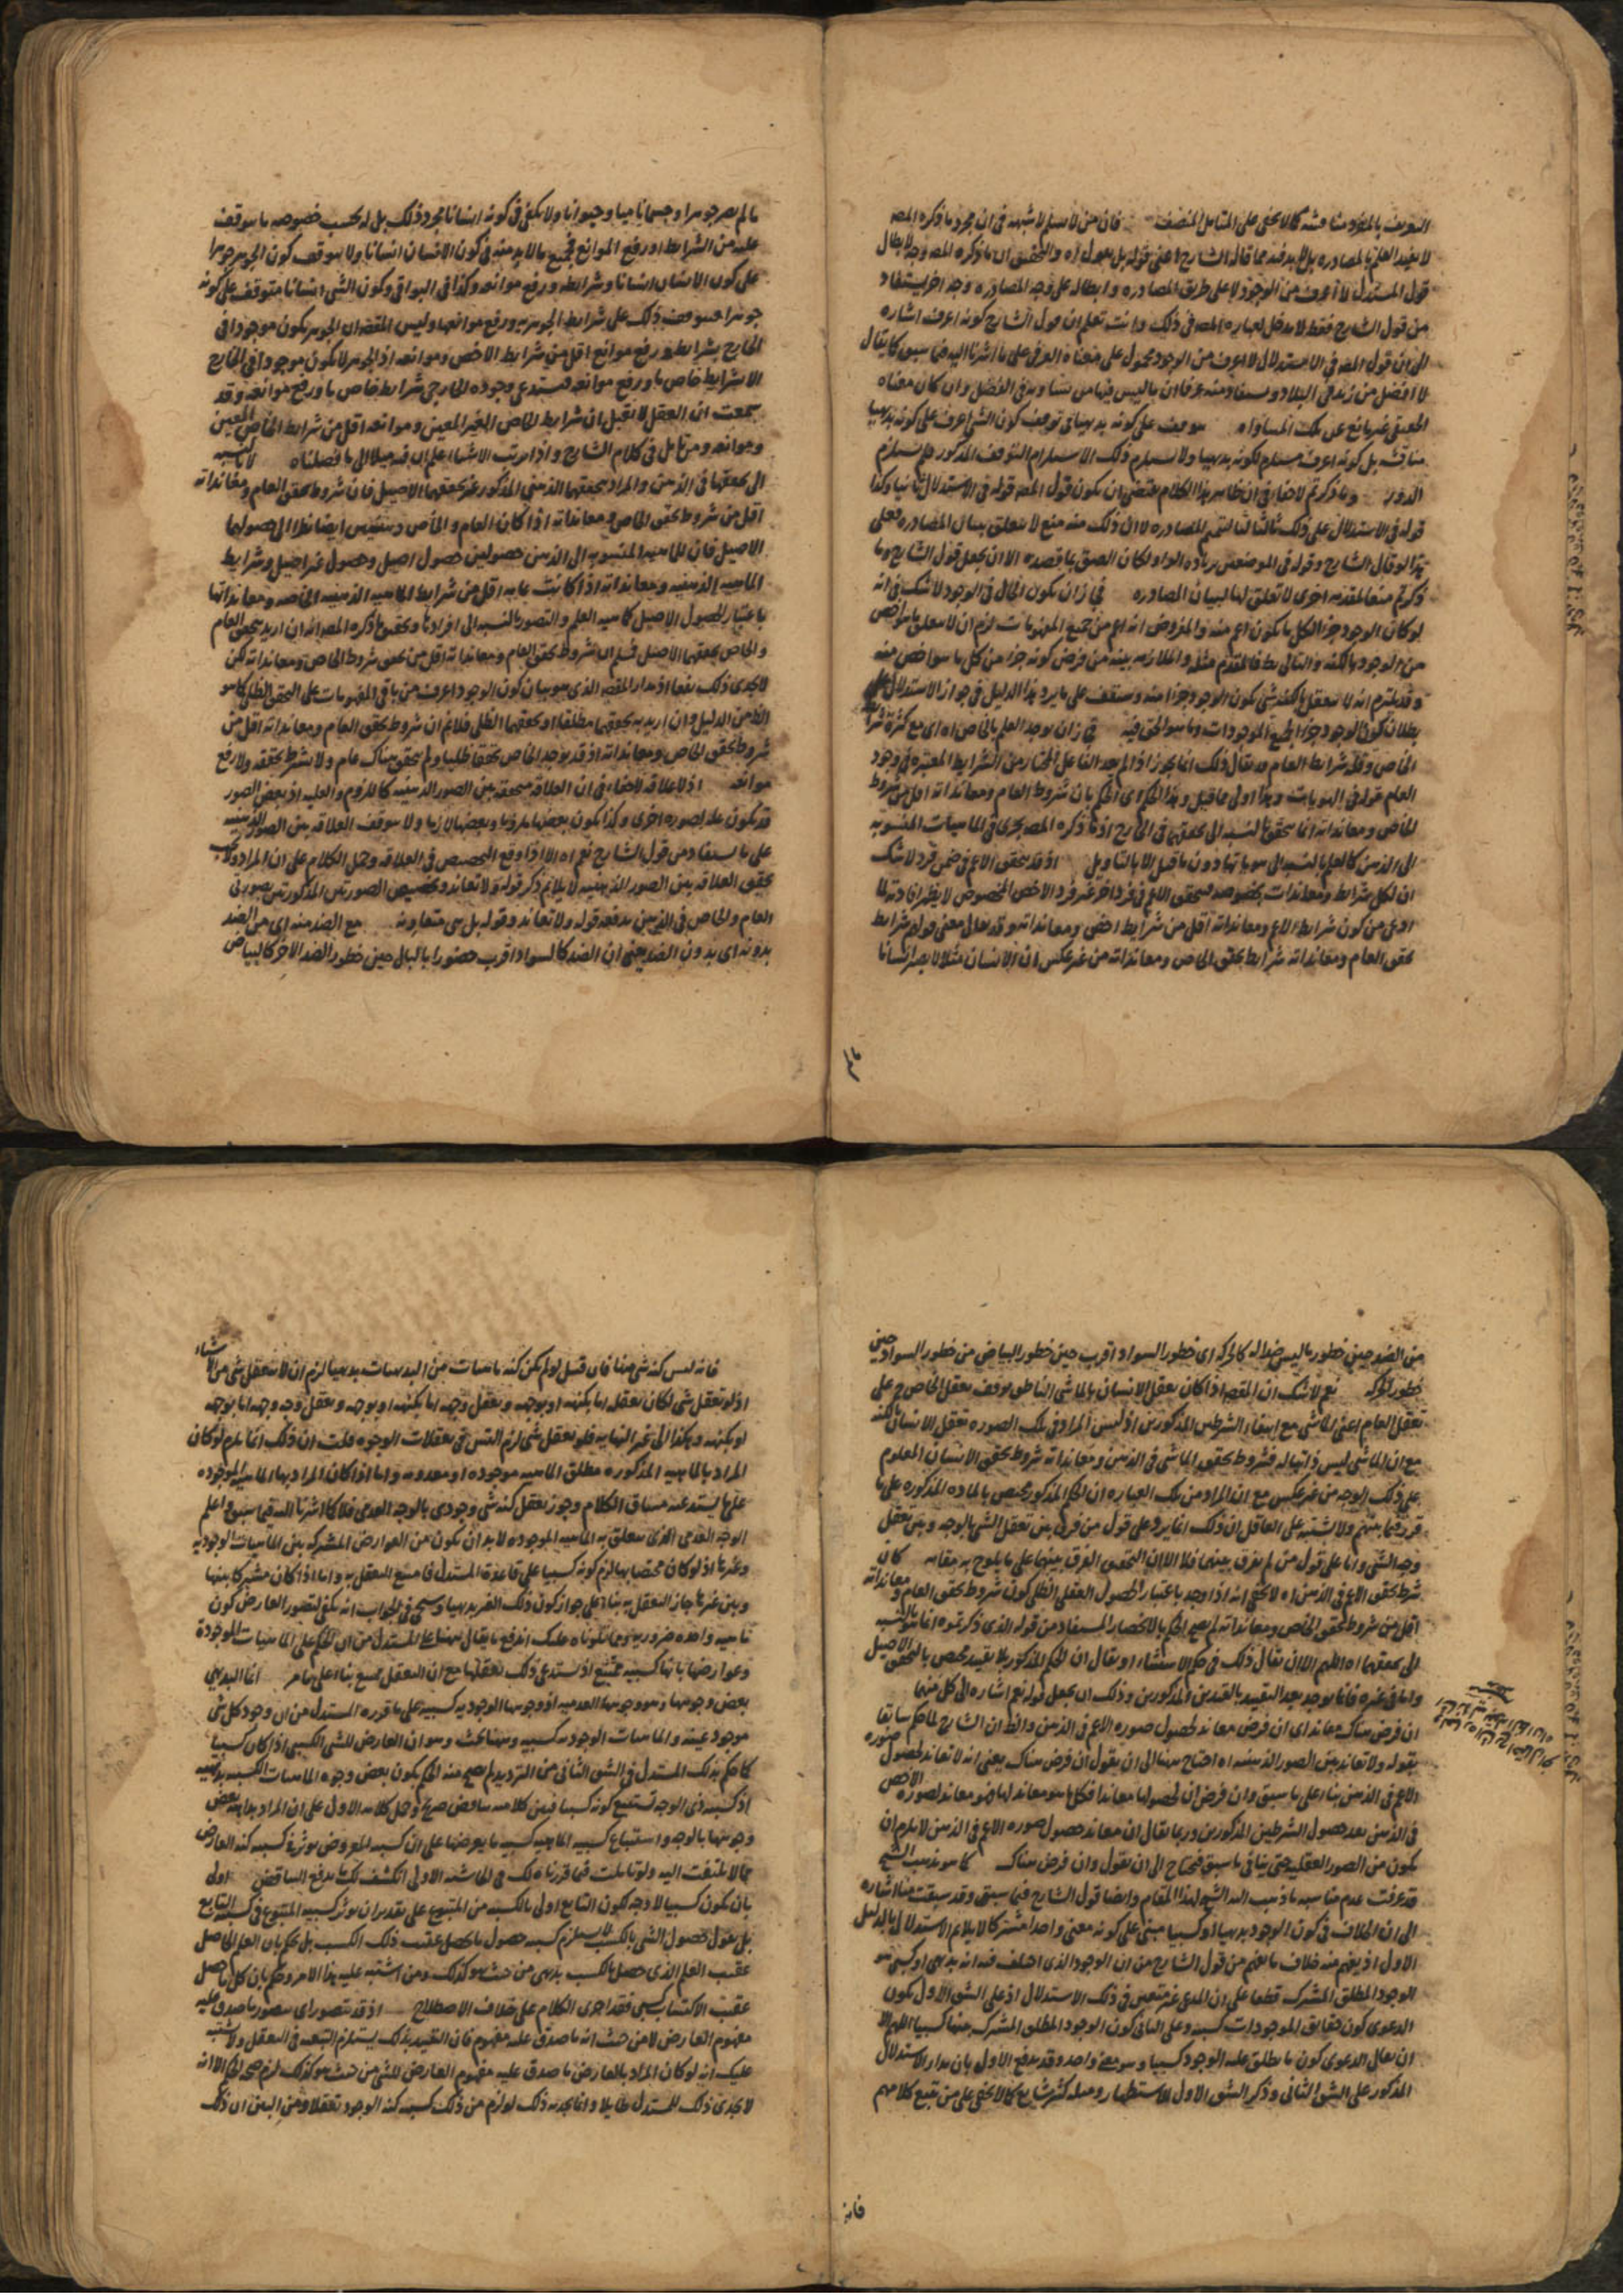 التعريف بالمفرد مناقشة كما لا يخفى على المتأمل المنصف فان من لاشبهه في ان مجرد ما ذكره المصـ
قول المستدل لا اعرف من الوجود لا على طريق المصادره وابطاله على وجه المصادره وجه اخر يستفاد
من قول الشارح فقط لا مدخل لعباره المصـ في ذلك وانت تعلم ان قول الشارح كونه اعرف اشاره
الى ان قول المصـ في الاستدلال لا اعرف من الوجود محمول على معناه العرفي على ما اشرنا اليه فيما سبق كما يقال
لا افضل من زيد في البلاد ويستفاد منه عرفا ان ما ليس فيها من يساويه في الفضل وان كان معناه
الحقيقي غير مانع عن تلك المساواه موقف على كونه بديهيا في توقف كون الشي اعرف على كونه بديهيا
مناقشه بل كونه اعرف مستلزم لكونه بديهيا ولا يستلزم ذلك الاستلزام التوقف المذكور فلم يستلزم
الدور وما ذكرتم لا خفاء في ان ظاهر هذا الكلام يقتضي ان يكون قول المصـ قوله في الاستدلال ثانيا وكذا
قوله في الاستدلال على ذلك ثالثا لتتميم المصادره لا ان ذلك منه منع لا يتعلق ببيان المصادره فعلى
هذا لو قال الشارح وقوله في الموضعين بزياده الواو لكان الصق بما قصده الا ان يجعل قول الشارح وما
ذكرتم منعا لمقدمه اخرى لا تعلق لها لبيان المصادره في ان يكون الحال في الوجود لا شك في انه
لو كان الوجود جزءا لكل ما يكون اعم منه والمفروض انه اعم من جميع المفهومات لزم ان لا يتعلق ما هو اخص
من الوجود بالكنه والتالي بط فالمقدم مثله والملازمه بينه من فرض كونه جزءا من كل ما هو اخص منه
وقد يلتزم انه لا يتعقل بالكنه شي يكون الوجود جزءا منه وستقف على ما يرد هذا الدليل في جواز الاستدلال على
بطلان كون الوجود جزءا لجميع الموجودات وما هو الحق فيه في ان يوجد العلم بالخاص اه اي مع كثرة شرائط
الخاص وقله شرائط العام قد يقال ذلك انما يجوز اذا لم يعد الفاعل المختار من الشرائط المعتبره في وجود
العام قوله في الهويات وهذا اولى مما قيل وهذا الحكم اي الحكم بان شروط العام ومعانداته اقل من شروط
الخاص ومعانداته انما يتحقق بالنسبه الى تحققها في الخارج اذ ما ذكره المصـ يجري في الماهيات المنسوبه
الى الذهن كالعلم بالنسبه الى هوياتها دون ما قيل الا بالتاويل اذ قد يتحقق الاعم في ضمن فرد لا شك
ان لكل شرائط ومعاندات بخصوصه ليتحقق الاعم في فرد اخر غير فرد الاخص المخصوص لا يظهر افادته لما
ادعى من كون شرائط الاعم ومعانداته اقل من شرائط اخص ومعانداته وقد يقال معنى قوله شرائط
تحقق العام ومعانداته شرائط تحقق الخاص ومعانداته من غير عكس ان الانسان مثلا لا يصير انسانا
ما لم يصر جوهرا وجسما ناميا وحيوانا ولا يكفي في كونه انسانا مجرد ذلك بل له بحسب خصوصه ما يتوقف
عليه من الشرائط ورفع الموانع فجميع ما لا بد منه في كون الانسان انسانا ولا يتوقف كون الجوهر جوهرا
على كون الانسان انسانا وشرائطه ورفع موانعه وكذا في البواقي وكون الشي انسانا متوقف على كونه
جوهرا فيتوقف ذلك على شرائط الجوهريه ورفع موانعها وليس المقصـ ان الجوهر يكون موجودا في
الخارج بشرائط ورفع موانع اقل من شرائط الاخص وموانعه اذ الجوهر لا يكون موجودا في الخارج
الا بشرائط خاص ما ورفع موانعه فيستدعي وجوده الخارجي شرائط خاص ما ورفع موانعه وقد
سمعت ان العقل لا يقبل ان شرائط الخاص الغير المعين وموانعه اقل من شرائط الخاص المعين
وموانعه ومن تامل في كلام الشارح واذا ترتب الاشياء علم ان فيه ميلا الى ما فصلناه لا بالنسبه
الى تحققها في الذهن والمراد بتحققها الذهني المذكور غير تحققها الاصيل فان شروط تحقق العام ومعانداته
اقل من شروط تحقق الخاص ومعانداته اذا كان العام والخاص ايضا نظرا الى حصولهما
الاصيل فان للماهيه المنسوبه الى الذهن حصولين حصول اصيل وحصول غير اصيل وشرائط
الماهيه الذهنيه ومعانداته اذا كانت عامه اقل من شرائط الماهيه الذهنيه الخاصه ومعانداتها
باعتبار الحصول الاصيل كماهيه العلم والتصور بالنسبه الى افرادها وتحقيق ما ذكره المصـ انه ان اريد بتحقق العام
والخاص تحققهما الاصيل فسلم ان شروط تحقق العام ومعانداته اقل من تحقق شروط الخاص ومعانداته لكن
لا يجدي ذلك نفعا اذ مدار المقصـ الذي هو بيان كون الوجود اعرف من باقي المفهومات على التحقق الظلي كما هو
الظ من الدليل وان اريد به تحققها مطلقا او تحققها الظلي فلا نم ان شروط تحقق العام ومعانداته اقل من
شروط تحقق الخاص ومعانداته اذ قد يوجد الخاص تحققا ظليا ولم يتحقق هناك عام ولا بشرط تحققه ولا رفع
موانعه اذ لا علاقه لا خفاء في ان العلاقه متحققه بين الصور الذهنيه كاللزوم والعليه اذ بعض الصور
قد يكون عله لصوره اخرى وكذا يكون بعضها ملزوما وبعضها لازما ولا يتوقف العلاقه بين الصور الذهنيه
على ما يستفاد من قول الشارح نعم اه الا اذا وقع التخصيص في العلاقه وحمل الكلام على ان المراد
تحقق العلاقه بين الصور الذهنيه لا يلائم ذكر قوله ولا تعاند وتخصيص الصورتين المذكورتين بصورتي
العام والخاص في الذهن يدفعه قوله ولا تعاند وقوله بل هي متعاونه مع الضد منه اي من الضد
بدونه اي بدون الضد يعني ان الضد كالسواد اقرب حضورا بالبال حين خطور الضد الاخر كالبياض
من الضد حين خطور ما ليس ضدا له كالحركه اي خطور السواد اقرب حين خطور البياض من خطور السواد حين
خطور الحركه نعم لا شك ان المقصـ اذا كان يعقل الانسان بالماشي الناطق يتوقف تعقل الخاص ح على
تعقل العام اعني الماشي مع انتفاء الشرطين المذكورين اذ ليس المراد في تلك الصوره تعقل الانسان بالكنه
مع ان الماشي ليس ذاتيا له فشروط تحقق الماشي في الذهن ومعانداته شروط تحقق الانسان المعلوم
على ذلك الوجه من غير عكس مع ان المراد من تلك العباره ان الحكم المذكور مختص بالماده المذكوره على ما
قرر فيما بينهم ولا يشتبه على العاقل ان ذلك انما يرد على قول من فرق بين تعقل الشي بالوجه وبين تعقل
وجه الشي واما على قول من لم يفرق بينهما فلا الا ان التحقيق الفرق بينهما على ما يلوح به مقابه كان
شرط تحقق الاعم في الذهن اه لا يخفى انه اذا وجد باعتبار الحصول العقلي الظلي كون شروط تحقق العام ومعانداته
اقل من شروط تحقق الخاص ومعانداته لم يصح الحكم بالانحصار المستفاد من قوله الذي ذكرتموه انما هو بالنسبه
الى تحققهما اه اللهم الا ان يقال ذلك في حكم الاستثناء او يقال ان الحكم المذكور بلا تقييد مختص بالتحقق الاصيل
واما في غيره فانما يوجد بعد التقييد بالقيدين المذكورين وذلك ان يجعل قوله نعم اشاره الى كل منهما
ان فرض هناك معاند اي ان فرض معاند لحصول صوره الاعم في الذهن والظ ان الشارح لما حكم سابقا
بقوله ولا تعاند بين الصور الذهنيه اه احتاج ههنا الى ان يقول ان فرض هناك يعني انه لا تعاند لحصول صوره
الاعم في الذهن بناء على ما سبق وان فرض ان لحصولها معاندا فكل ما هو معاند لها فهو معاند لصوره الاخص
في الذهن بعد حصول الشرطين المذكورين وربما يقال ان معاند حصول صوره الاعم في الذهن لا يلزم ان
يكون من الصور العقليه حتى ينافي ما سبق فيحتاج الى ان يقول وان فرض هناك كما هو مذهب الشيخ
قد عرفت عدم مناسبه ما ذهب اليه الشيخ لهذا المقام وايضا قول الشارح فيما سبق وقد سبقت منا اشاره
الى ان الخلاف في كون الوجود بديهيا او كسبيا مبني على كونه معنى واحدا مشتركا لا يلائم الاستدلال بالدليل
الاول اذ يفهم منه خلاف ما يفهم من قول الشارح من ان الوجود الذي اختلف فيه انه بديهي او كسبي هو
الوجود المطلق المشترك قطعا على ان المدعى غير متعين في ذلك الاستدلال اذ على الشق الاول يكون
الدعوى كون حقايق الموجودات كسبيه وعلى الثاني كون الوجود المطلق المشترك بينها كسبيا اللهم الا
ان يقال الدعوى كون ما يطلق عليه الوجود كسبيا وهو معنى واحد وقد يدفع الاول بان مدار الاستدلال
المذكور على الشق الثاني وذكر الشق الاول للاستظهار ومثله كثير شايع كما لا يخفى على من تتبع كلامهم
فانه
فانه ليس كنه شي منها فان قيل لو لم يكن كنه ماهيات من البديهيات بديهيا لزم ان لا يتعقل شي من الاشياء
اذ لو تعقل شي لكان تعقله اما بكنهه او بوجهه وتعقل وجهه اما بكنهه او بوجهه وتعقل وجه وجهه اما بوجهه
او بكنهه وهكذا الى غير النهايه فلو تعقل شي لزم التس في تعقلات الوجوه قلت ان ذلك انما يلزم لو كان
المراد بالماهيه المذكوره مطلق الماهيه موجوده او معدومه واما اذا كان المراد بها الماهيه الموجوده
على ما يستدعيه مساق الكلام وجوز تعقل كنه شي وجودي بالوجه العدمي فلا كما اشرنا اليه فيما سبق واعلم
الوجه العدمي الذي يتعلق به الماهيه الموجوده لا بد ان يكون من العوارض المشتركه بين الماهيات الوجوديه
وغيرها اذ لو كان مختصا بها لزم كونه كسبيا على قاعدة المستدل فامتنع التعقل به واما اذا كان مشتركا بينها
وبين غيرها جاز التعقل به بناء على جواز كون ذلك الغير بديهيا وسيجي في الجواب انه يكفي لتصور العارض كون
ماهيه واحده ضروريه وبما تلوناه عليك اندفع ما يقال ههنا على المستدل من ان الحكم على الماهيات الموجودة
وعوارضها بانها كسبيه ممتنع اذ يستدعي ذلك تعقلها مع ان التعقل ممتنع بناء على ما مر انما البديهي
بعض وجوهها وهو وجوهها العدميه اذ وجوهها الوجوديه كسبيه على ما قرره المستدل من ان وجود كل شي
موجود عينه والماهيات الوجوديه كسبيه وههنا بحث وهو ان العارض للشي الكسبي اذا كان كسبيا
كما حكم بذلك المستدل في الشق الثاني من الترديد لم يصح منه الحكم بكون بعض وجوه الماهيات الكسبيه بديهيه
اذ كسبيه ذي الوجه تستتبع كونه كسبيا فبين كلاميه تناقض صريح وحمل كلامه الاول على ان المراد بداهه بعض
وجوهها بالوجه واستتباع كسبيه الماهيه كسبيه ما يعرضها على ان كسبيه المعروض يوثر في كسبيه كنه العارض
مما لا يلتفت اليه ولو تاملت فيما قررناه لك في الحاشيه الاولى انكشف لك ما يدفع التناقض اولى
بان يكون كسبيا لا وجه لكون التابع اولى بالكسبيه من المتبوع على تقدير ان يوثر كسبيه المتبوع في كسبيه التابع
بل نقول حصول الشي بالكسب لا يستلزم كسبيه حصول ما يحصل عقيب ذلك الكسب بل نحكم بان العلم الحاصل
عقيب العلم الذي حصل بالكسب بديهي من حيث هو كذلك ومن اشتبه عليه هذا الامر وحكم بان كل ما حصل
عقيب الاكتساب كسبي فقد اجرى الكلام على خلاف الاصطلاح اذ قد يتصور اي يتصور ما صدق عليه
مفهوم العارض لا من حيث انه ما صدق عليه مفهوم فان التقييد بذلك يستلزم التبعيه في التعقل ولا يشتبه
عليك انه لو كان المراد بالعارض ما صدق عليه مفهوم العارض للشي من حيث هو كذلك لزم صحه الحكم الا انه
لا يجدي ذلك للمستدل طائلا وانما يجديه ذلك لو لزم من ذلك كسبيه كنه الوجود تعقلا ومن البين ان ذلك